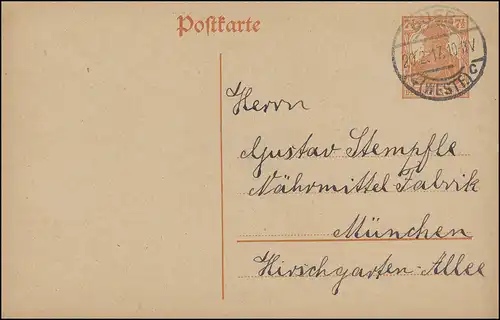 Postkarte
7½
7½
BUER
20.2.17.10-11V
(WESTF.)
Herrn
Gustav Stempfle
Nährmittel Fabrik
München
Hirschgarten-Allee